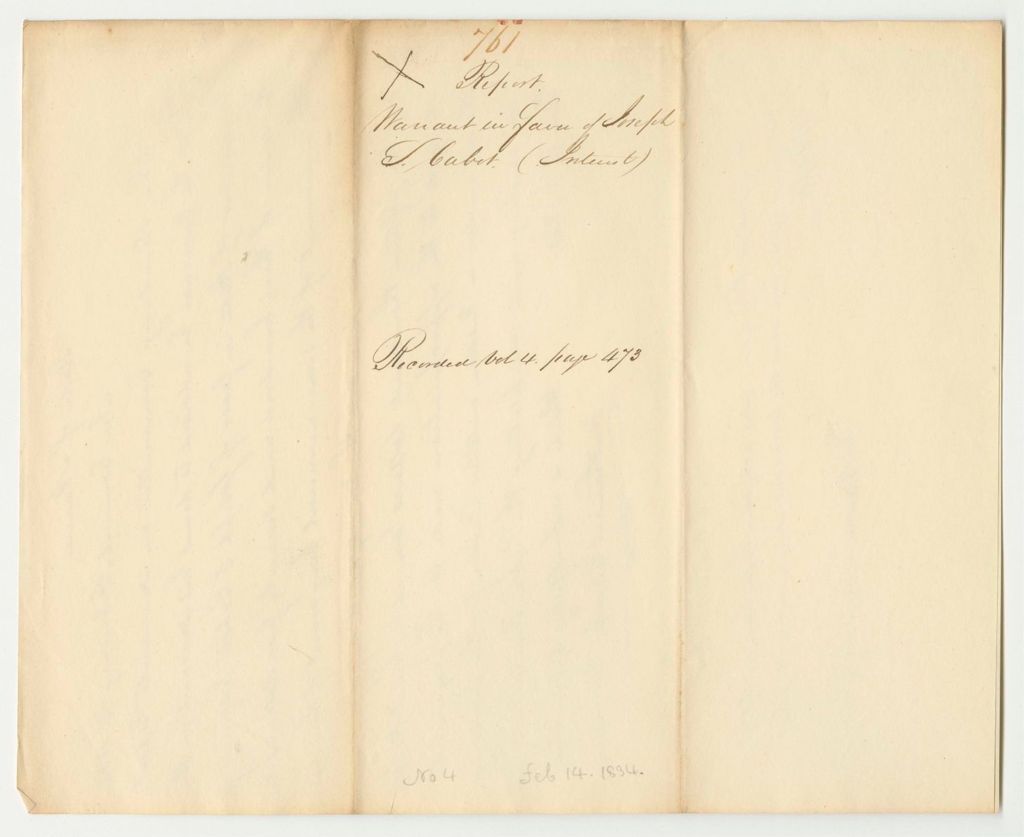 761
X Report.
Warrant in favor of Joseph
S. Cabot. (Interest)
Recorded Vol 4. page 473
No 4 Feb 14. 1834.